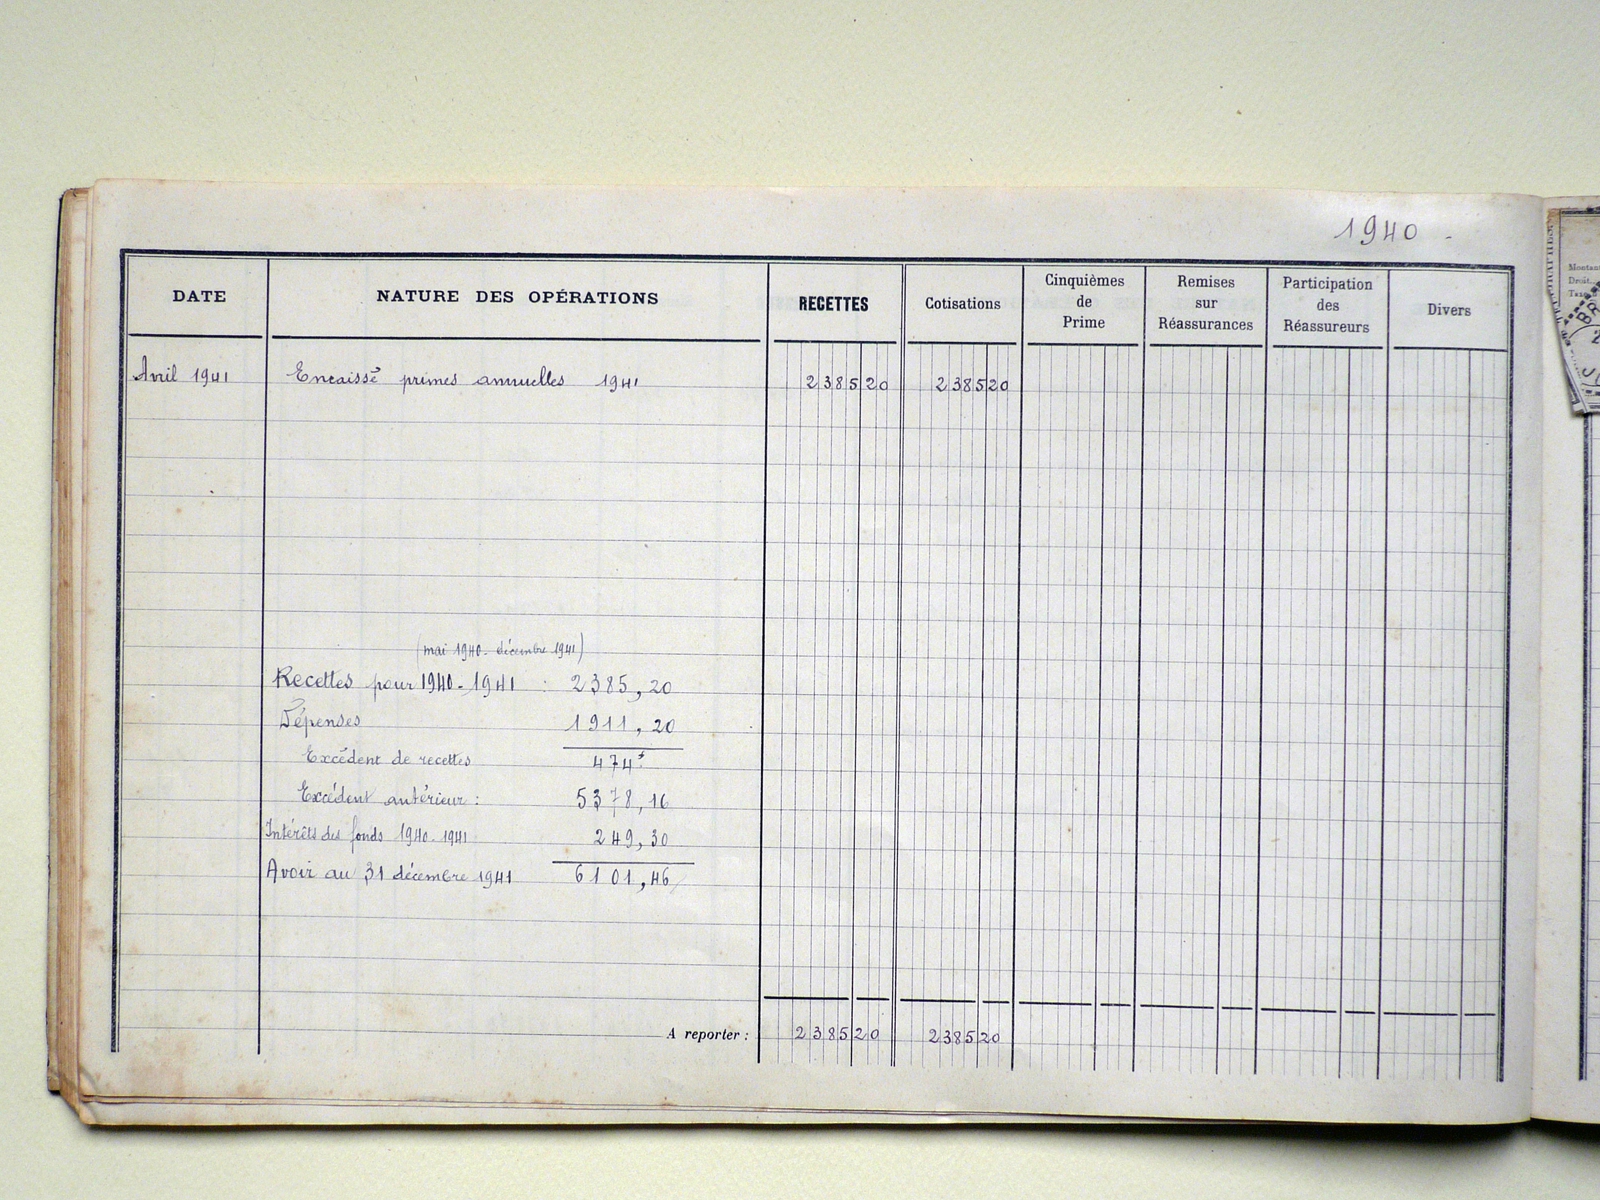 1940 -
DATE NATURE DES OPÉRATIONS RECETTES Cotisations Cinquièmes de Prime Remises sur Réassurances Participation des Réassureurs Divers
Avril 1941 Encaissé primes annuelles 1941 2385 20 2385 20
(mai 1940 - décembre 1941)
Recettes pour 1940-1941 : 2385,20
Dépenses 1911,20
Excédent de recettes 474 f
Excédent antérieur : 5378,16
Intérêts des fonds 1940-1941 249,30
Avoir au 31 décembre 1941 6101,46
A reporter : 2385 20 2385 20
Montant
Droit